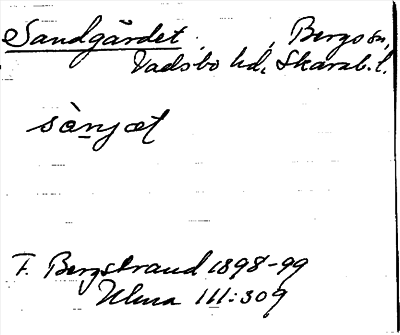 Sandgärdet, Bergs sn,
Vadsbo hd, Skarab. l.
sànjæt
F. Bergstrand 1898-99
111:309